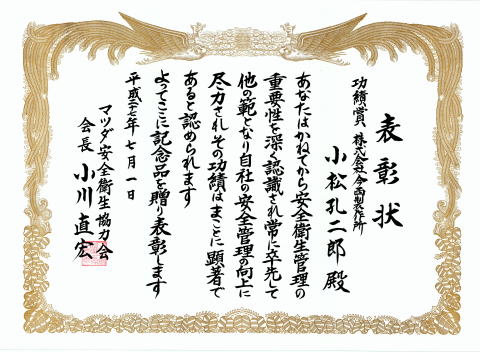 表彰状
功績賞 株式会社今西製作所
小松孔二郎 殿
あなたはかねてから安全衛生管理の
重要性を深く認識され常に卒先して
他の範となり自社の安全管理の向上に
尽力されその功績はまことに顕著で
あると認められます
よってここに記念品を贈り表彰します
平成二十七年七月一日
マツダ安全衛生協力会
会長 小川直宏